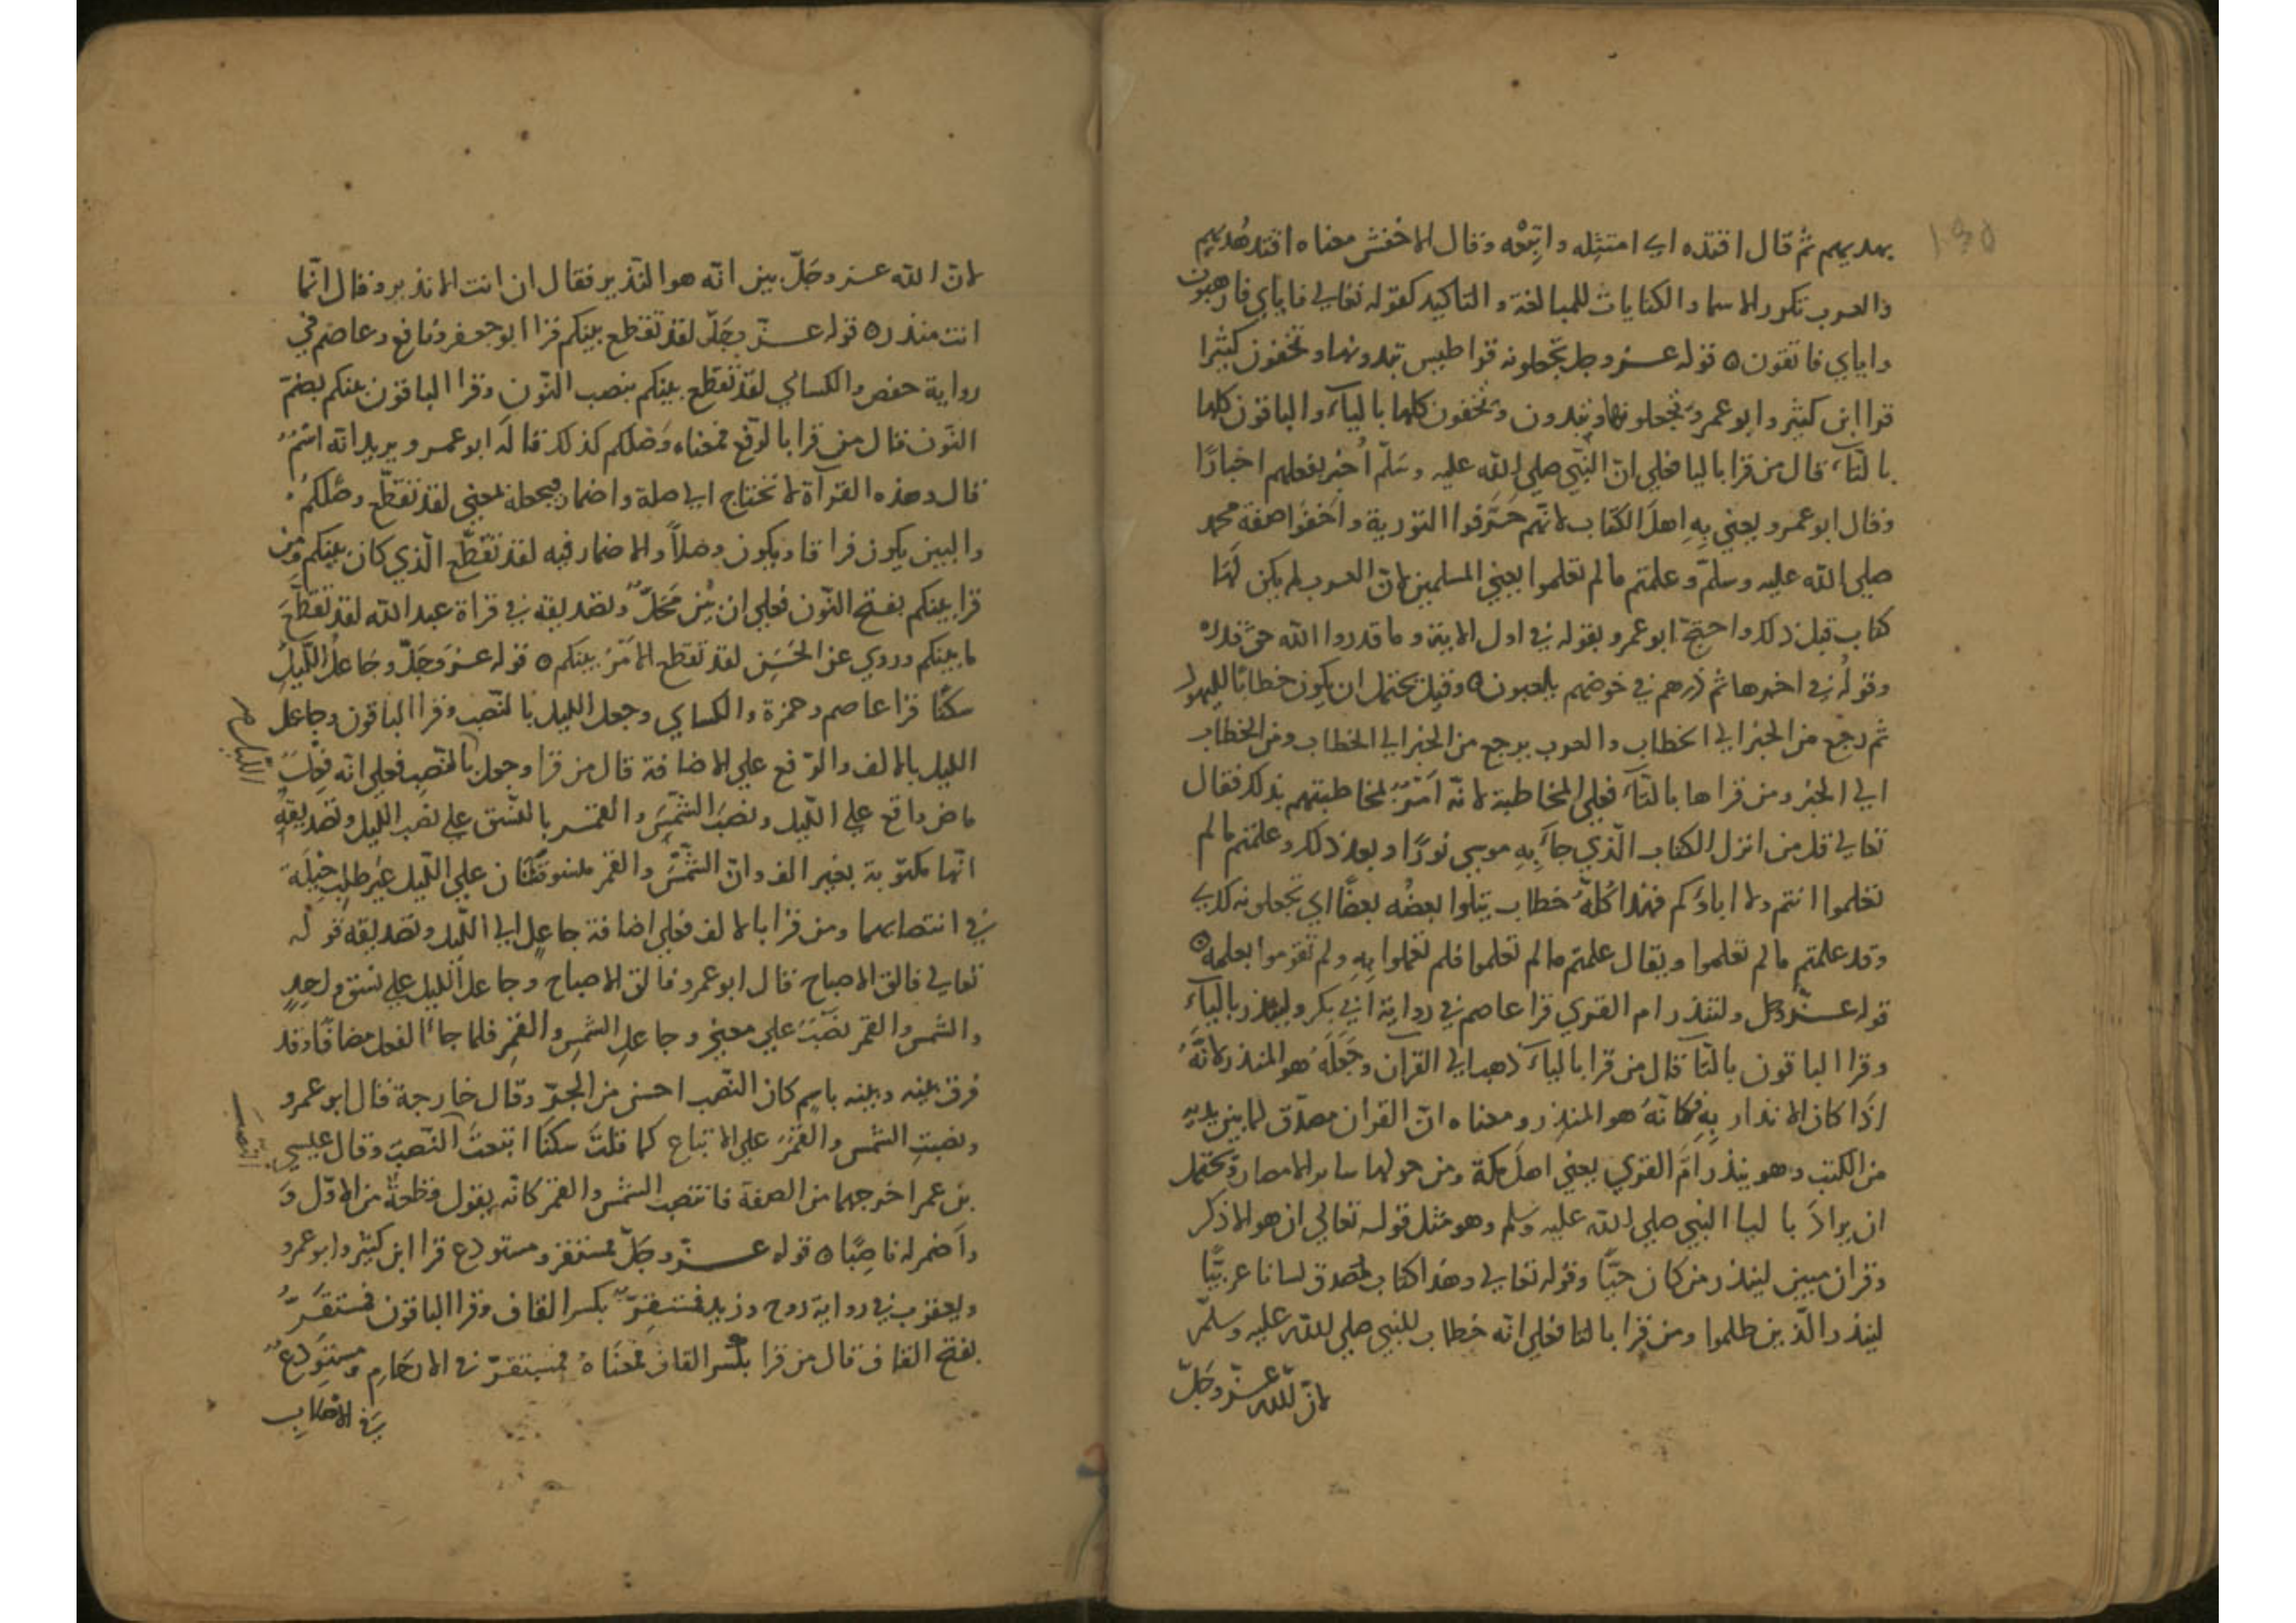 بهديهم ثم قال اقتده اي امتثله واتبعه وقال الاخفش معناه اقتد هديهم
والعرب تكرر الاسما والكنايات للمبالغة والتاكيد كقوله تعالي فاياي فارهبون
واياي فاتقون ه قوله عز وجل تجعلونه قراطيس تبدونها وتخفون كثيرا
قرا ابن كثير وابو عمرو يجعلونها ويبدون ويخفون كلها بالياء والباقون كلها
بالتاء قال من قرا باليا فعلي ان النبي صلي الله عليه وسلم اخبر بفعلهم اخبارا
وقال ابو عمرو يعني به اهل الكتاب لانهم حرفوا التورية واخفوا صفة محمد
صلي الله عليه وسلم وعلمتم مالم تعلموا يعني المسلمين لان العرب لم يكن لها
كتاب قبل ذلك واحتج ابو عمرو بقوله في اول الاية وما قدروا الله حق قدره
وقوله في اخرها ثم ذرهم في خوضهم يلعبون ه وقيل يحتمل ان يكون خطابا لليهود
ثم رجع من الخبر الي الخطاب والعرب يرجع من الخبر الي الخطاب ومن الخطاب
الي الخبر ومن قراها بالتاء فعلي المخاطبة لانه امر لمخاطبتهم بذلك فقال
تعالي قل من انزل الكتاب الذي جاء به موسي نورا وبعد ذلك وعلمتم مالم
تعلموا انتم ولا اباؤكم فهذا كله خطاب يتلوا بعضه بعضا اي تجعلونه كذي
وقد علمتم مالم تعلموا ويقال علمتم مالم تعلموا فلم تعملوا به ولم تقوموا بعلمه ه
قوله عز وجل ولتنذر ام القري قرا عاصم في رواية ابي بكر ولينذر بالياء
وقرا الباقون بالتا قال من قرا بالياء ذهب الي القران وجعله هو المنذر لانه
اذا كان الانذار به فكانه هو المنذر ومعناه ان القران مصدق لما بين يديه
من الكتب وهو ينذر ام القري يعني اهل مكة ومن حولها ساير الامصار ويحتمل
ان يراد باليا النبي صلي الله عليه وسلم وهو مثل قوله تعالي ان هو الا ذكر
وقران مبين لينذر من كان حيا وقوله تعالي وهذا كتاب مصدق لسانا عربيا
لينذر الذين ظلموا ومن قرا بالتا فعلي انه خطاب للنبي صلي الله عليه وسلم
لان الله عز وجل
لان الله عز وجل بين انه هو النذير فقال ان انت الا نذير وقال انما
انت منذر ه قوله عز وجل لقد تقطع بينكم قرا ابو جعفر ونافع وعاصم في
رواية حفص والكسائي لقد تقطع بينكم بنصب النون وقرا الباقون بينكم بضم
النون قال من قرا بالرفع فمعناه وصلكم كذلك قاله ابو عمرو يريد انه اسم
قال وهذه القراة لا تحتاج الي صلة واضمار فيجعله لمعني لقد تقطع وصلكم
والبين يكون فراقا ويكون وصلا والاضمار فيه لقد تقطع الذي كان بينكم ومن
قرا بينكم بفتح النون فعلي ان بين محل وتصديقه في قراة عبد الله لقد تقطع
ما بينكم وروي عن الحسن لقد تقطع الامر بينكم ه قوله عز وجل وجاعل الليل
سكنا قرا عاصم وحمزة والكساي وجعل الليل بالنصب وقرا الباقون وجاعل
الليل بالالف والرفع علي الاضافة قال من قرا وجعل بالنصب فعلي انه فعل
ماض واقع علي الليل ونصب الشمس والقمر بالنسق علي نصب الليل وتصديقه
انها مكتوبة بغير الف وان الشمس والقمر منسوقتان علي الليل غير طلب حيلة
في انتصابهما ومن قرا بالالف فعلي اضافة جاعل الي الليل وتصديقه قوله
تعالي فالق الاصباح قال ابو عمرو فالق الاصباح وجاعل الليل علي نسق واحد
والشمس والقمر نصب علي معني وجاعل الشمس والقمر فلما جاء الفعل مضافا وقد
فرق بينه وبينه باسم كان النصب احسن من الجر وقال خارجة قال ابو عمرو
ونصبت الشمس والقمر علي الاتباع كما قلت سكنا اتبعت النصب وقال عيسي
بن عمر اخرجهما من الصفة فانتصبت الشمس والقمر كانه يقول قطعه من الاول و
واضمر له ناصبا ه قوله عز وجل فمستقر ومستودع قرا ابن كثير وابو عمرو
ويعقوب في رواية روح وزيد فمستقر بكسر القاف وقرا الباقون فمستقر
بفتح القاف قال من قرا بكسر القاف فمعناه فمستقر في الارحام ومستودع
في الاصلاب